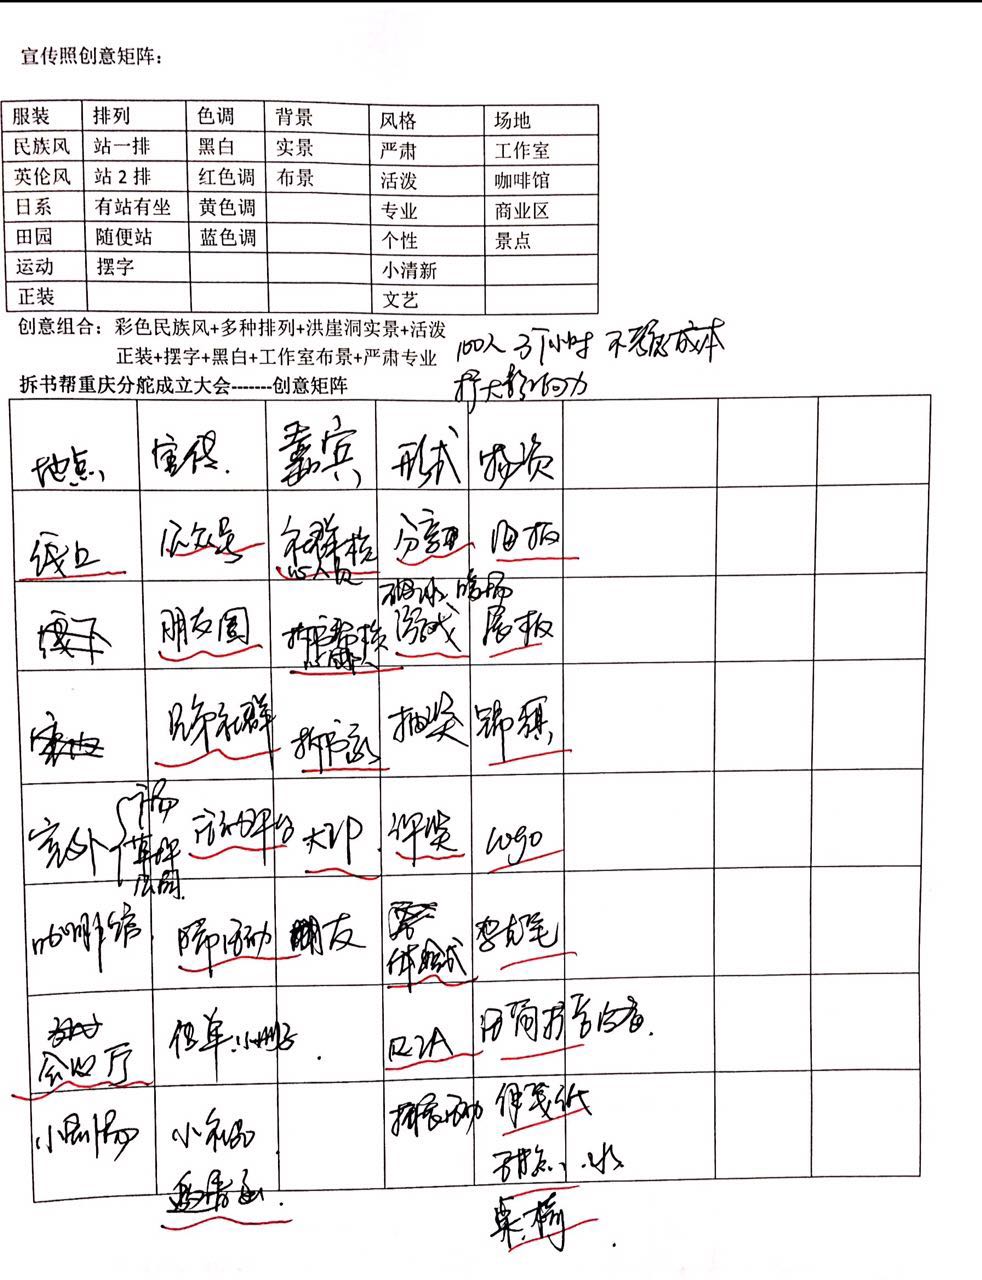 宣传照创意矩阵：
服装 排列 色调 背景 风格 场地
民族风 站一排 黑白 实景 严肃 工作室
英伦风 站2排 红色调 布景 活泼 咖啡馆
日系 有站有坐 黄色调 专业 商业区
田园 随便站 蓝色调 个性 景点
运动 摆字 小清新
正装 文艺
创意组合：彩色民族风+多种排列+洪崖洞实景+活泼
正装+摆字+黑白+工作室布景+严肃专业
100人 3个小时 不考虑成本
扩大影响力
拆书帮重庆分舵成立大会-------创意矩阵
地点 宣传 嘉宾 形式 物资
线上 公众号 社群核心人员 分享 海报
线下 朋友圈 破冰 暖场 游戏 展板
兄弟社群 拆书家 抽奖 锦旗
室外 广场 草坪 公园 活动平台 大IP 评奖 logo
咖啡馆 活动 朋友 体验式
会议厅 传单 小册子 Q2A
小剧场 小礼品 拓展活动 便笺纸
邀请函 甜点、水
桌椅